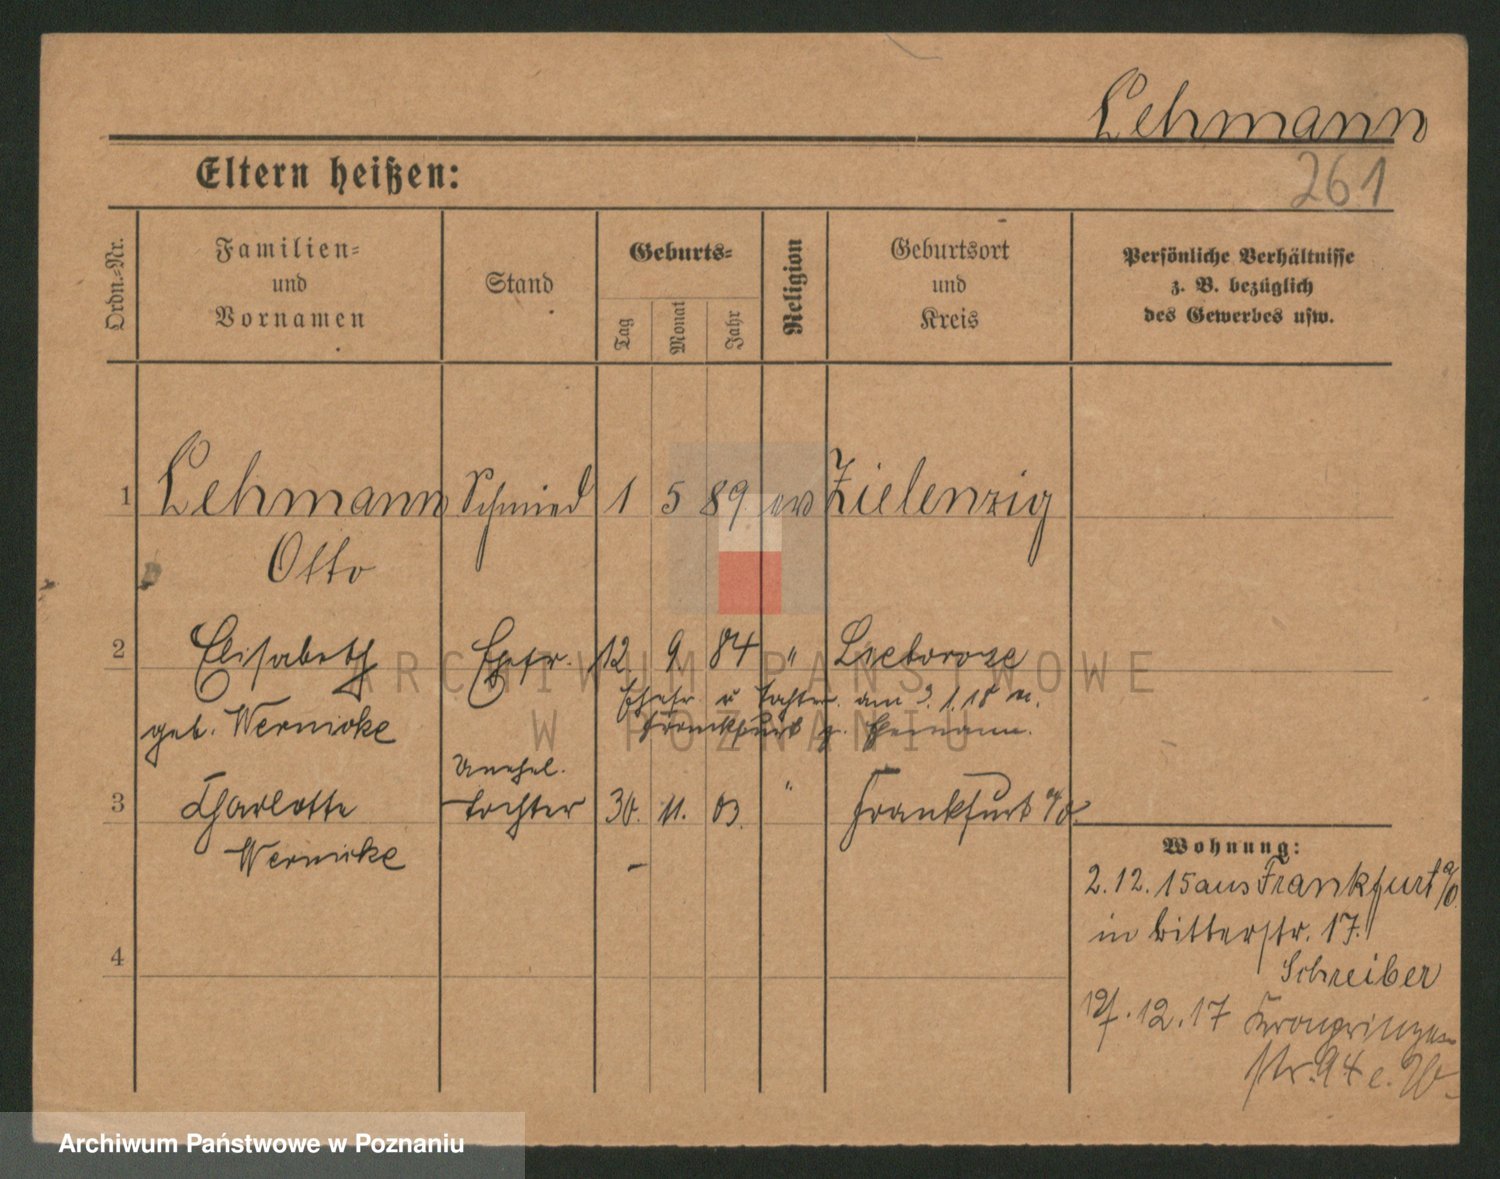 Lehmann
261
Eltern heißen:
Ordn.-Nr.
Familien-
und
Vornamen
Stand
Geburts-
Tag
Monat
Jahr
Religion
Geburtsort
und
Kreis
Persönliche Verhältnisse
z. B. bezüglich
des Gewerbes usw.
1 Lehmann Schmied 1 5 89 ev Zielenzig
Otto
2 Elisabeth Ehefr. 12. 9. 84 " Lieberose
Ehefr u Tochter am 3.1.18 n.
geb. Wernicke
Frankfurt
Unehel.
3 Charlotte Tochter 30. 11. 03. " Frankfurt a/O
Wernicke
4
Wohnung:
2.12.15 aus Frankfurt a/O.
in Bitterstr. 17.
Schreiber
12.17 Kronprinzen
str. 94
ARCHIWUM PAŃSTWOWE
W POZNANIU
Archiwum Państwowe w Poznaniu